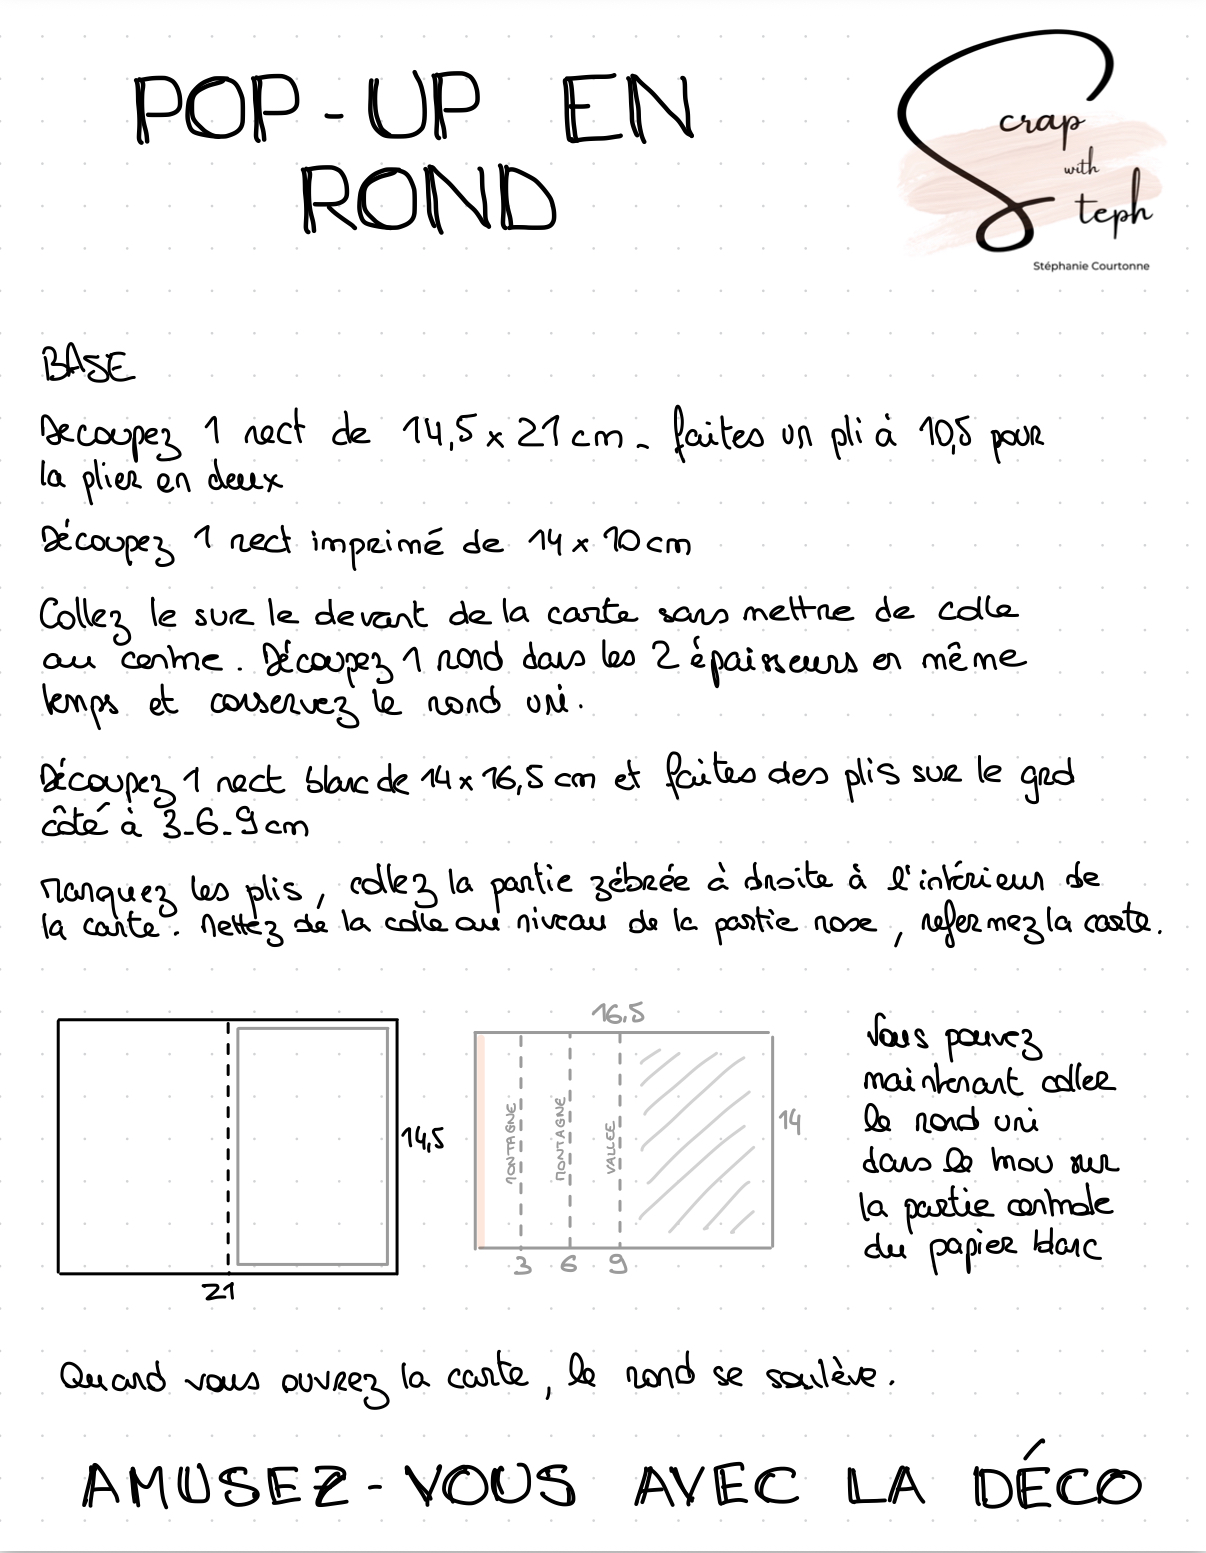 POP-UP EN
ROND
Scrap
with
Steph
Stéphanie Courtonne
BASE
Decoupez 1 rect de 14,5 x 21 cm - faites un pli à 10,5 pour
la plier en deux
Découpez 1 rect imprimé de 14 x 10 cm
Collez le sur le devant de la carte sans mettre de colle
au centre. Découpez 1 rond dans les 2 épaisseurs en même
temps et conservez le rond uni.
Découpez 1 rect blanc de 14 x 16,5 cm et faites des plis sur le grd
côté à 3-6-9 cm
Marquez les plis, collez la partie zébrée à droite à l'intérieur de
la carte. Mettez de la colle au niveau de la partie rose, refermez la carte.
16,5
14,5
MONTAGNE
MONTAGNE
VALLEE
14
3 6 9
21
Vous pouvez
maintenant coller
le rond uni
dans le trou sur
la partie centrale
du papier blanc
Quand vous ouvrez la carte, le rond se soulève.
AMUSEZ-VOUS AVEC LA DÉCO